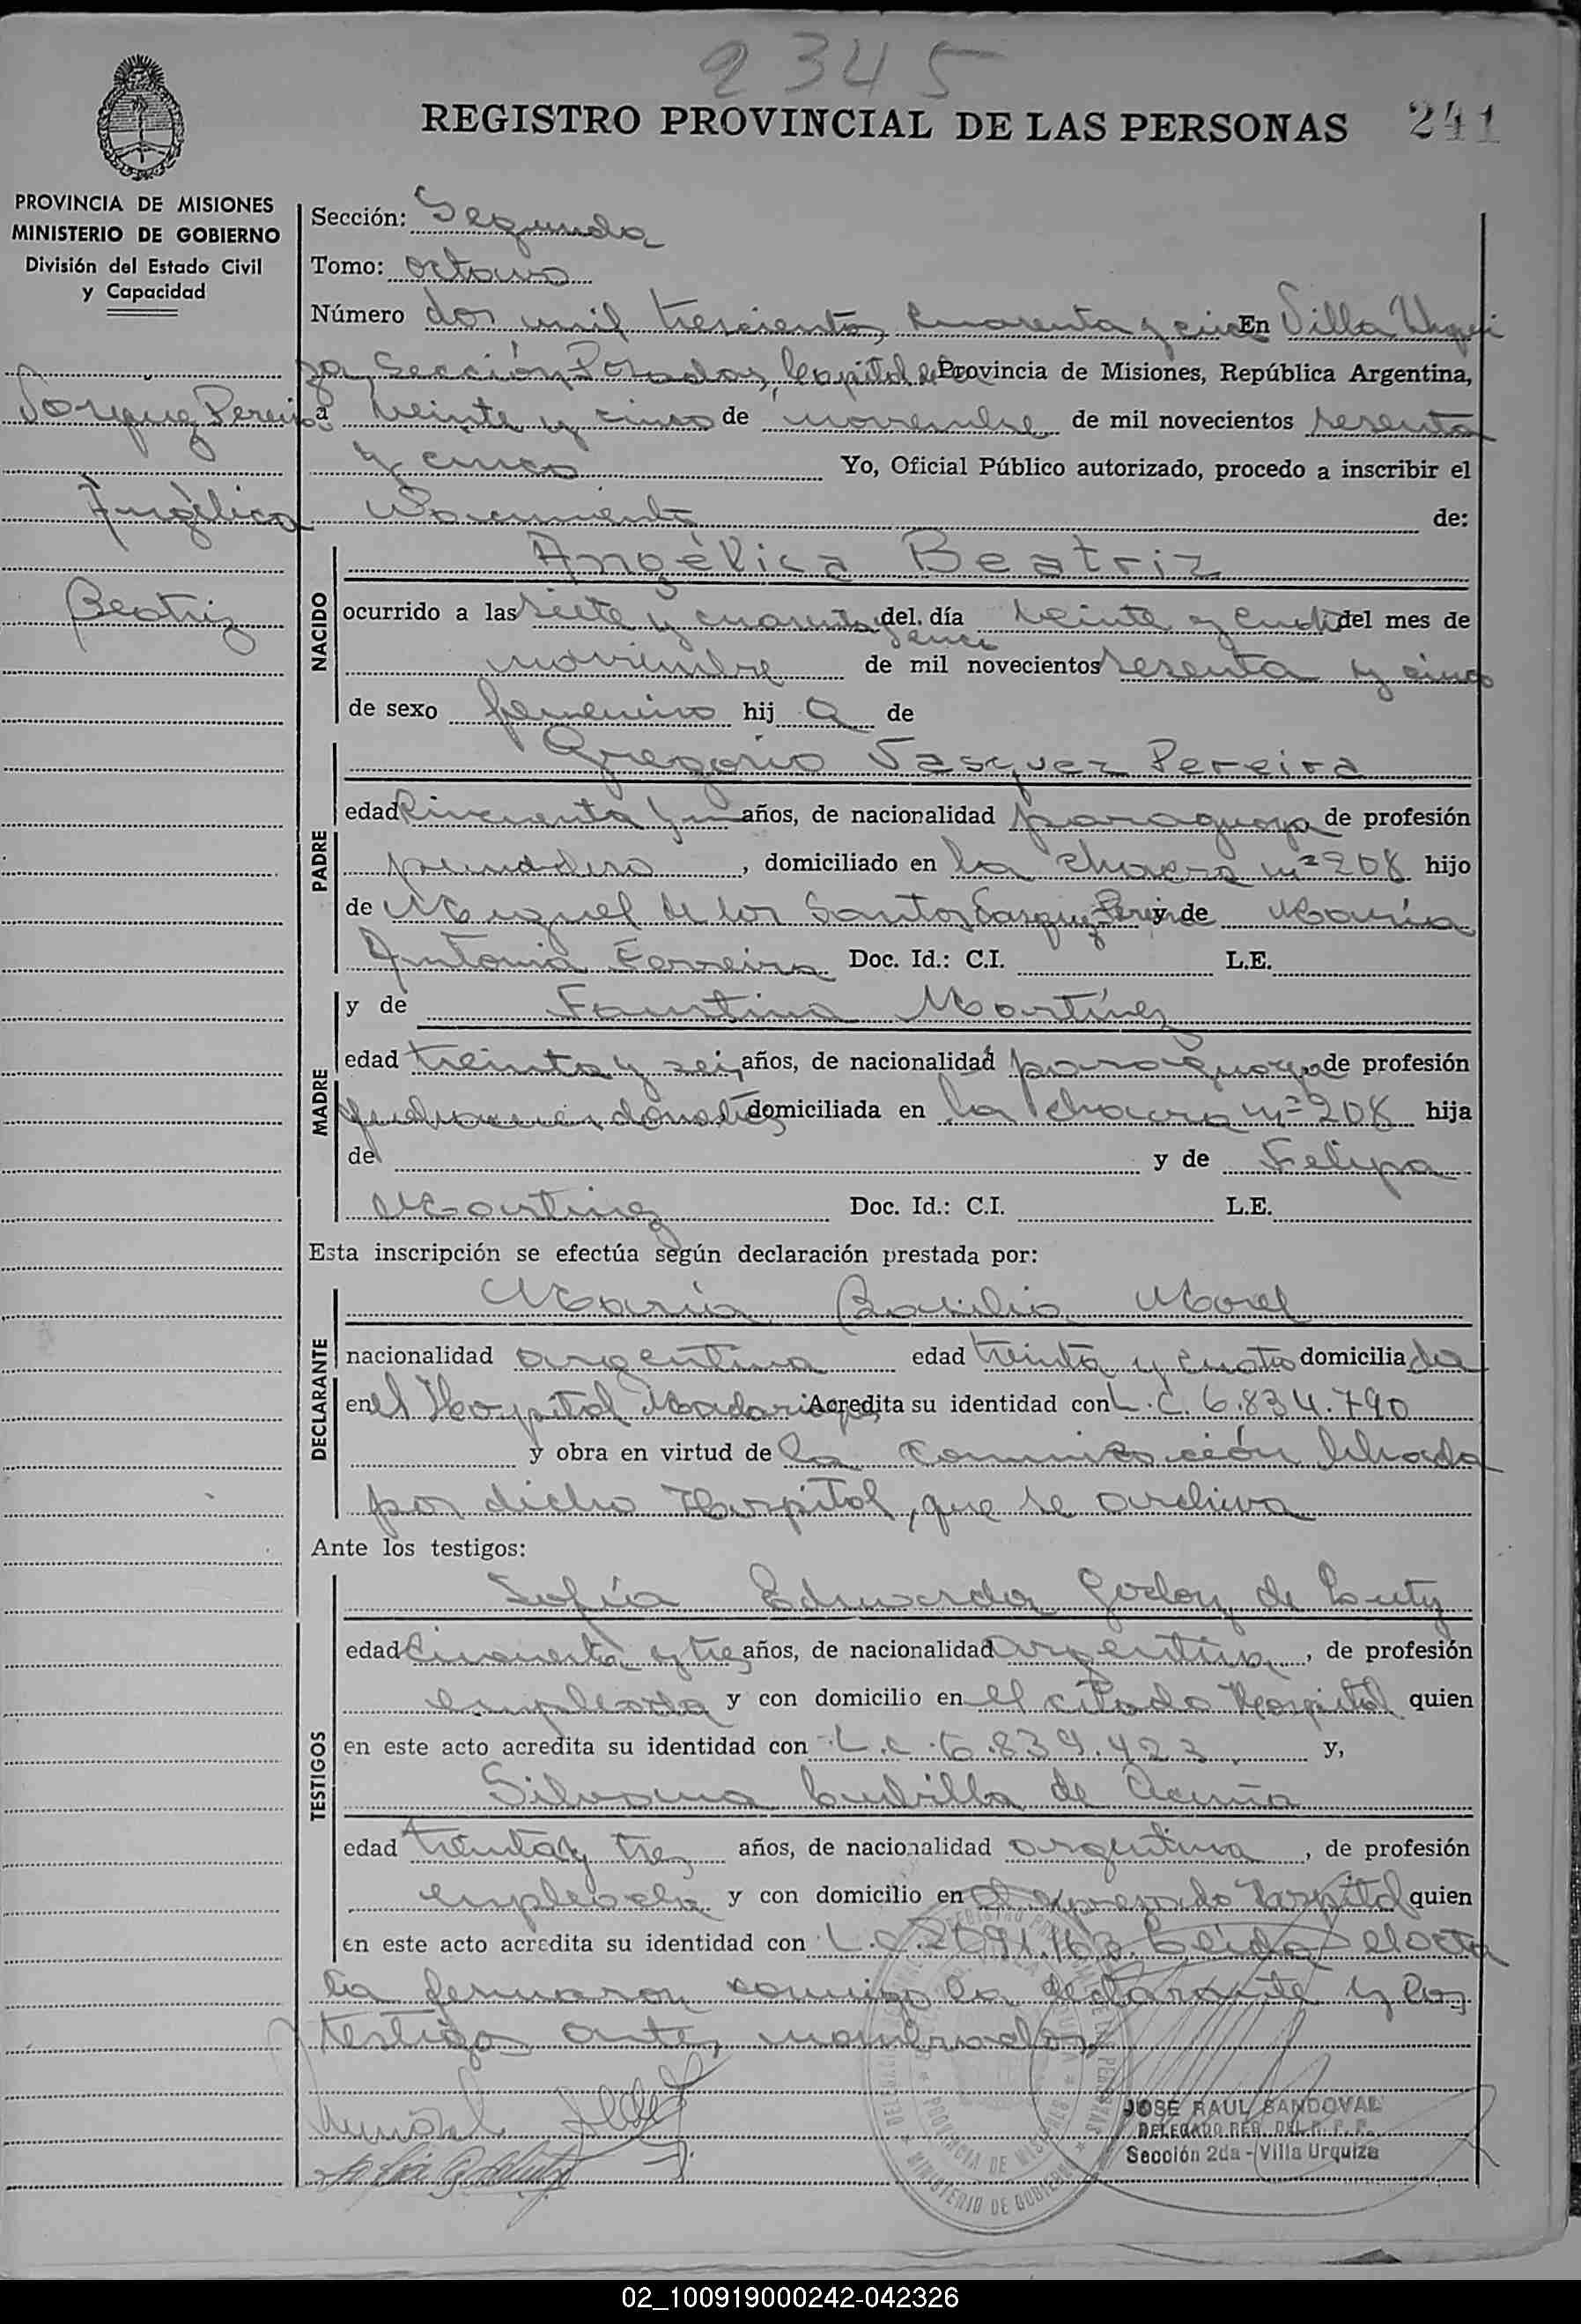 2345
REGISTRO PROVINCIAL DE LAS PERSONAS 241
PROVINCIA DE MISIONES
MINISTERIO DE GOBIERNO
División del Estado Civil
y Capacidad
Vasquez Pereira
Angélica
Beatriz
Sección: Segunda
Tomo: octavo
Número dos mil trescientos cuarenta y cinco En Villa Urqui
za, Sección Posadas, Capital de la Provincia de Misiones, República Argentina,
a veinte y cinco de noviembre de mil novecientos sesenta
y cinco Yo, Oficial Público autorizado, procedo a inscribir el
Nacimiento de:
NACIDO
Angélica Beatriz
ocurrido a las siete y cuarenta y cinco del día veinte y cuatro del mes de
noviembre de mil novecientos sesenta y cinco
de sexo femenino hij a de
PADRE
Gregorio Vasquez Pereira
edad Cincuenta y un años, de nacionalidad paraguaya de profesión
panadero, domiciliado en la chacra nº 208 hijo
de Miguel de los Santos Vasquez Pereira y de María
Antonia Ferreira Doc. Id.: C.I. L.E.
MADRE
y de Faustina Martínez
edad treinta y seis años, de nacionalidad paraguaya de profesión
quehaceres domésticos domiciliada en la chacra nº 208 hija
de y de Felipa
Martinez Doc. Id.: C.I. L.E.
Esta inscripción se efectúa según declaración prestada por:
DECLARANTE
María Basilia Morel
nacionalidad argentina edad treinta y cuatro domicilia da
en el Hospital Madariaga Acredita su identidad con L.C. 6.834.790
y obra en virtud de la comunicación librada
por dicho Hospital, que se archiva
Ante los testigos:
TESTIGOS
Sofía Eduarda Godoy de
edad Cincuenta y tres años, de nacionalidad argentina, de profesión
empleada y con domicilio en el citado Hospital quien
en este acto acredita su identidad con L.C. 6.839.423 y,
Silvana de Acuña
edad treinta y tres años, de nacionalidad argentina, de profesión
empleada y con domicilio en el expresado Hospital quien
en este acto acredita su identidad con L.C. Leída el acta
la firmaron conmigo la declarante y los
testigos antes nombrados
JOSE RAUL SANDOVAL
DELEGADO REG. DEL R. P. P.
Sección 2da - Villa Urquiza
02_100919000242-042326